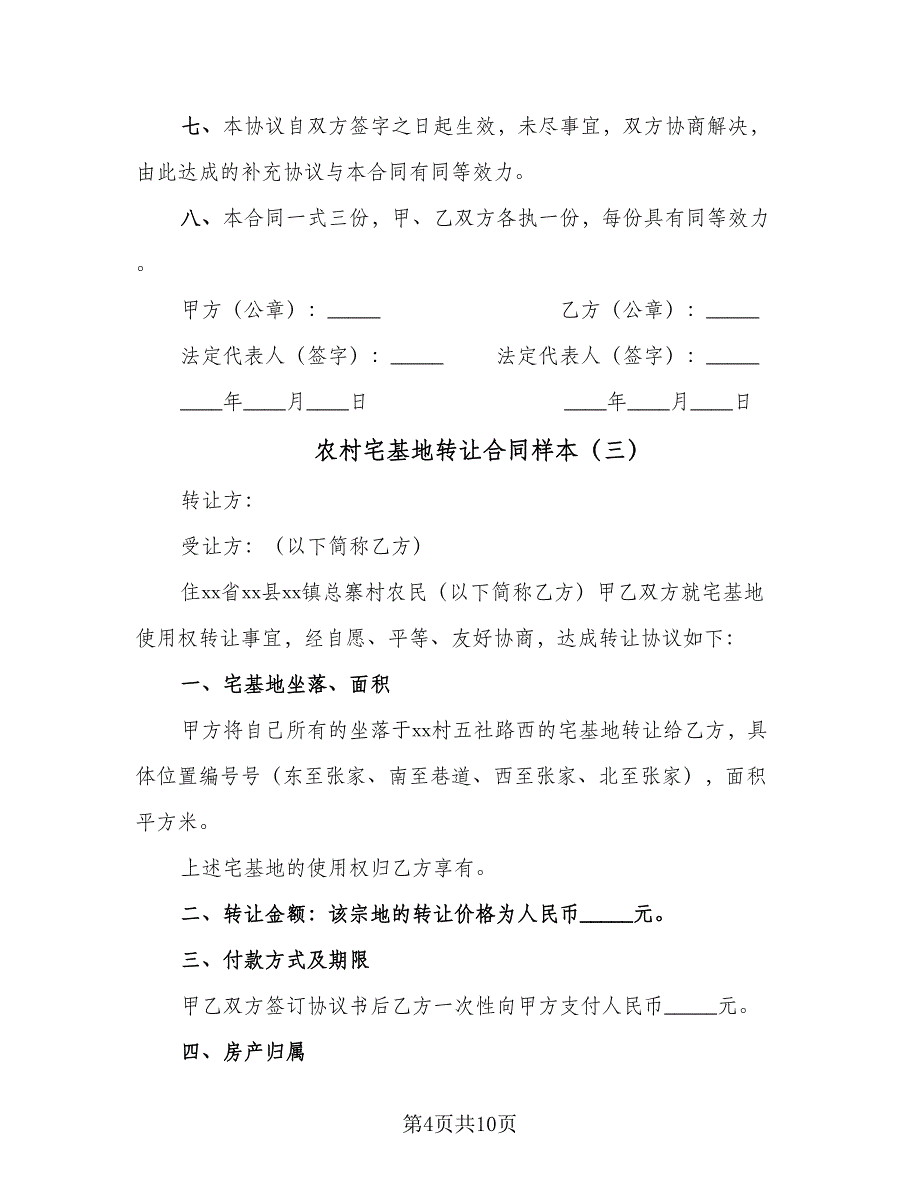 七、本协议自双方签字之日起生效，未尽事宜，双方协商解决，
由此达成的补充协议与本合同有同等效力。
八、本合同一式三份，甲、乙双方各执一份，每份具有同等效力
。
甲方（公章）：_____ 乙方（公章）：_____
法定代表人（签字）：_____ 法定代表人（签字）：_____
____年____月____日 ____年____月____日
农村宅基地转让合同样本（三）
转让方：
受让方：（以下简称乙方）
住xx省xx县xx镇总寨村农民（以下简称乙方）甲乙双方就宅基地
使用权转让事宜，经自愿、平等、友好协商，达成转让协议如下：
一、宅基地坐落、面积
甲方将自己所有的坐落于xx村五社路西的宅基地转让给乙方，具
体位置编号号（东至张家、南至巷道、西至张家、北至张家），面积
平方米。
上述宅基地的使用权归乙方享有。
二、转让金额：该宗地的转让价格为人民币_____元。
三、付款方式及期限
甲乙双方签订协议书后乙方一次性向甲方支付人民币_____元。
四、房产归属
第4页共10页